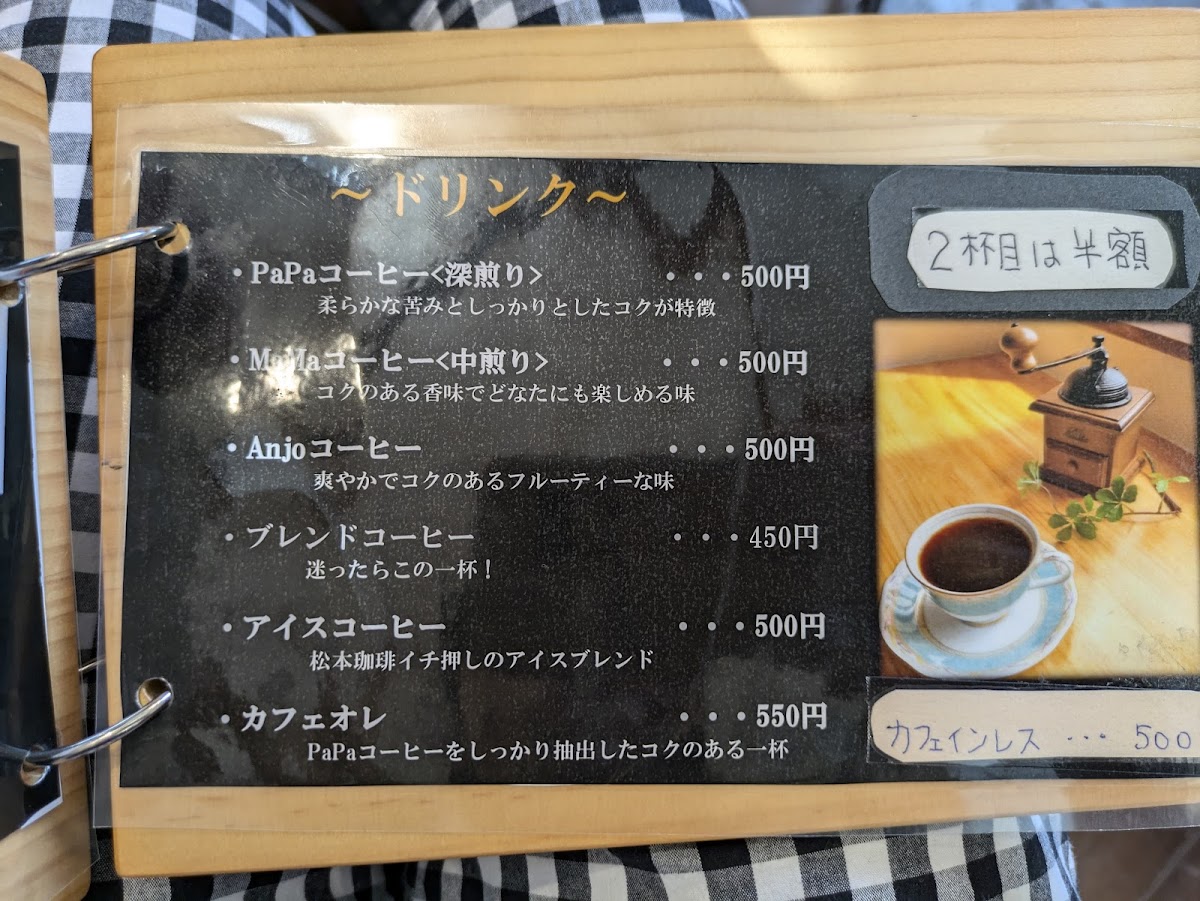 ～ドリンク～
・PaPaコーヒー<深煎り> ・・・500円
柔らかな苦みとしっかりとしたコクが特徴
・MaMaコーヒー<中煎り> ・・・500円
コクのある香味でどなたにも楽しめる味
・Anjoコーヒー ・・・500円
爽やかでコクのあるフルーティーな味
・ブレンドコーヒー ・・・450円
迷ったらこの一杯！
・アイスコーヒー ・・・500円
松本珈琲イチ押しのアイスブレンド
・カフェオレ ・・・550円
PaPaコーヒーをしっかり抽出したコクのある一杯
2杯目は半額
カフェインレス ・・・ 500